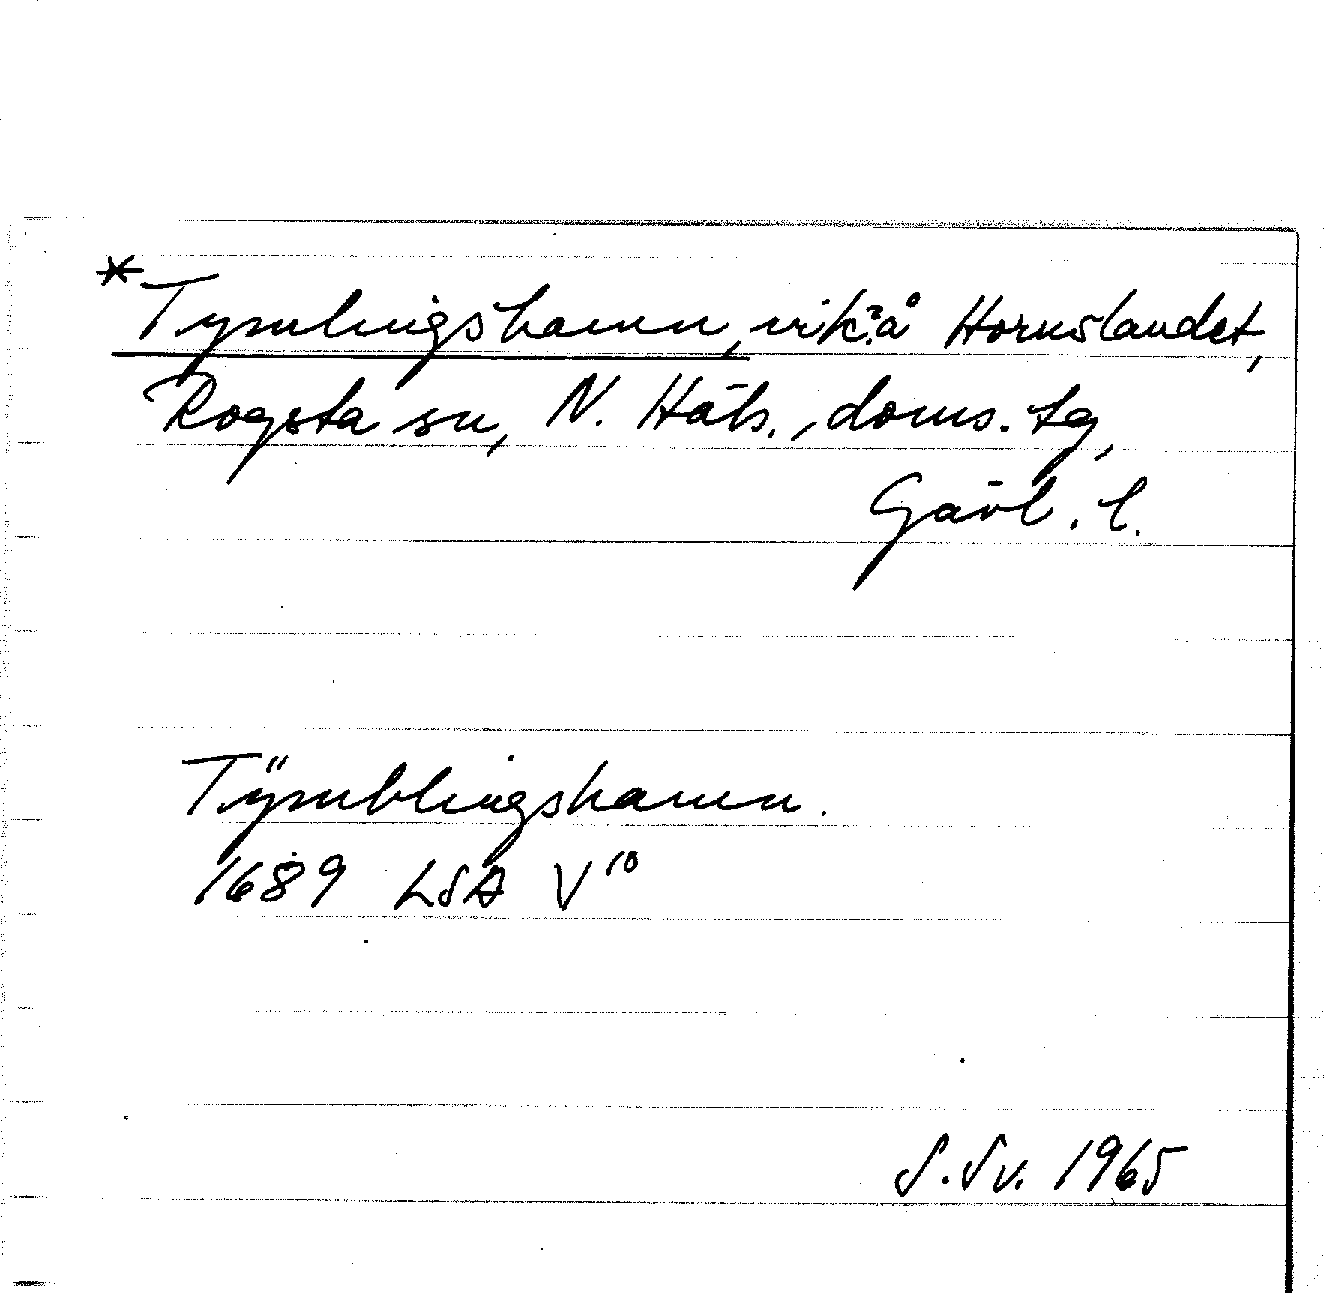 *Tymlingshamn, vik? å Hornslandet,
Rogsta sn, N. Häls., doms. tg,
Gävl. l.
Tÿmblingshamn.
1689 LSA V10
S. Sv. 1965